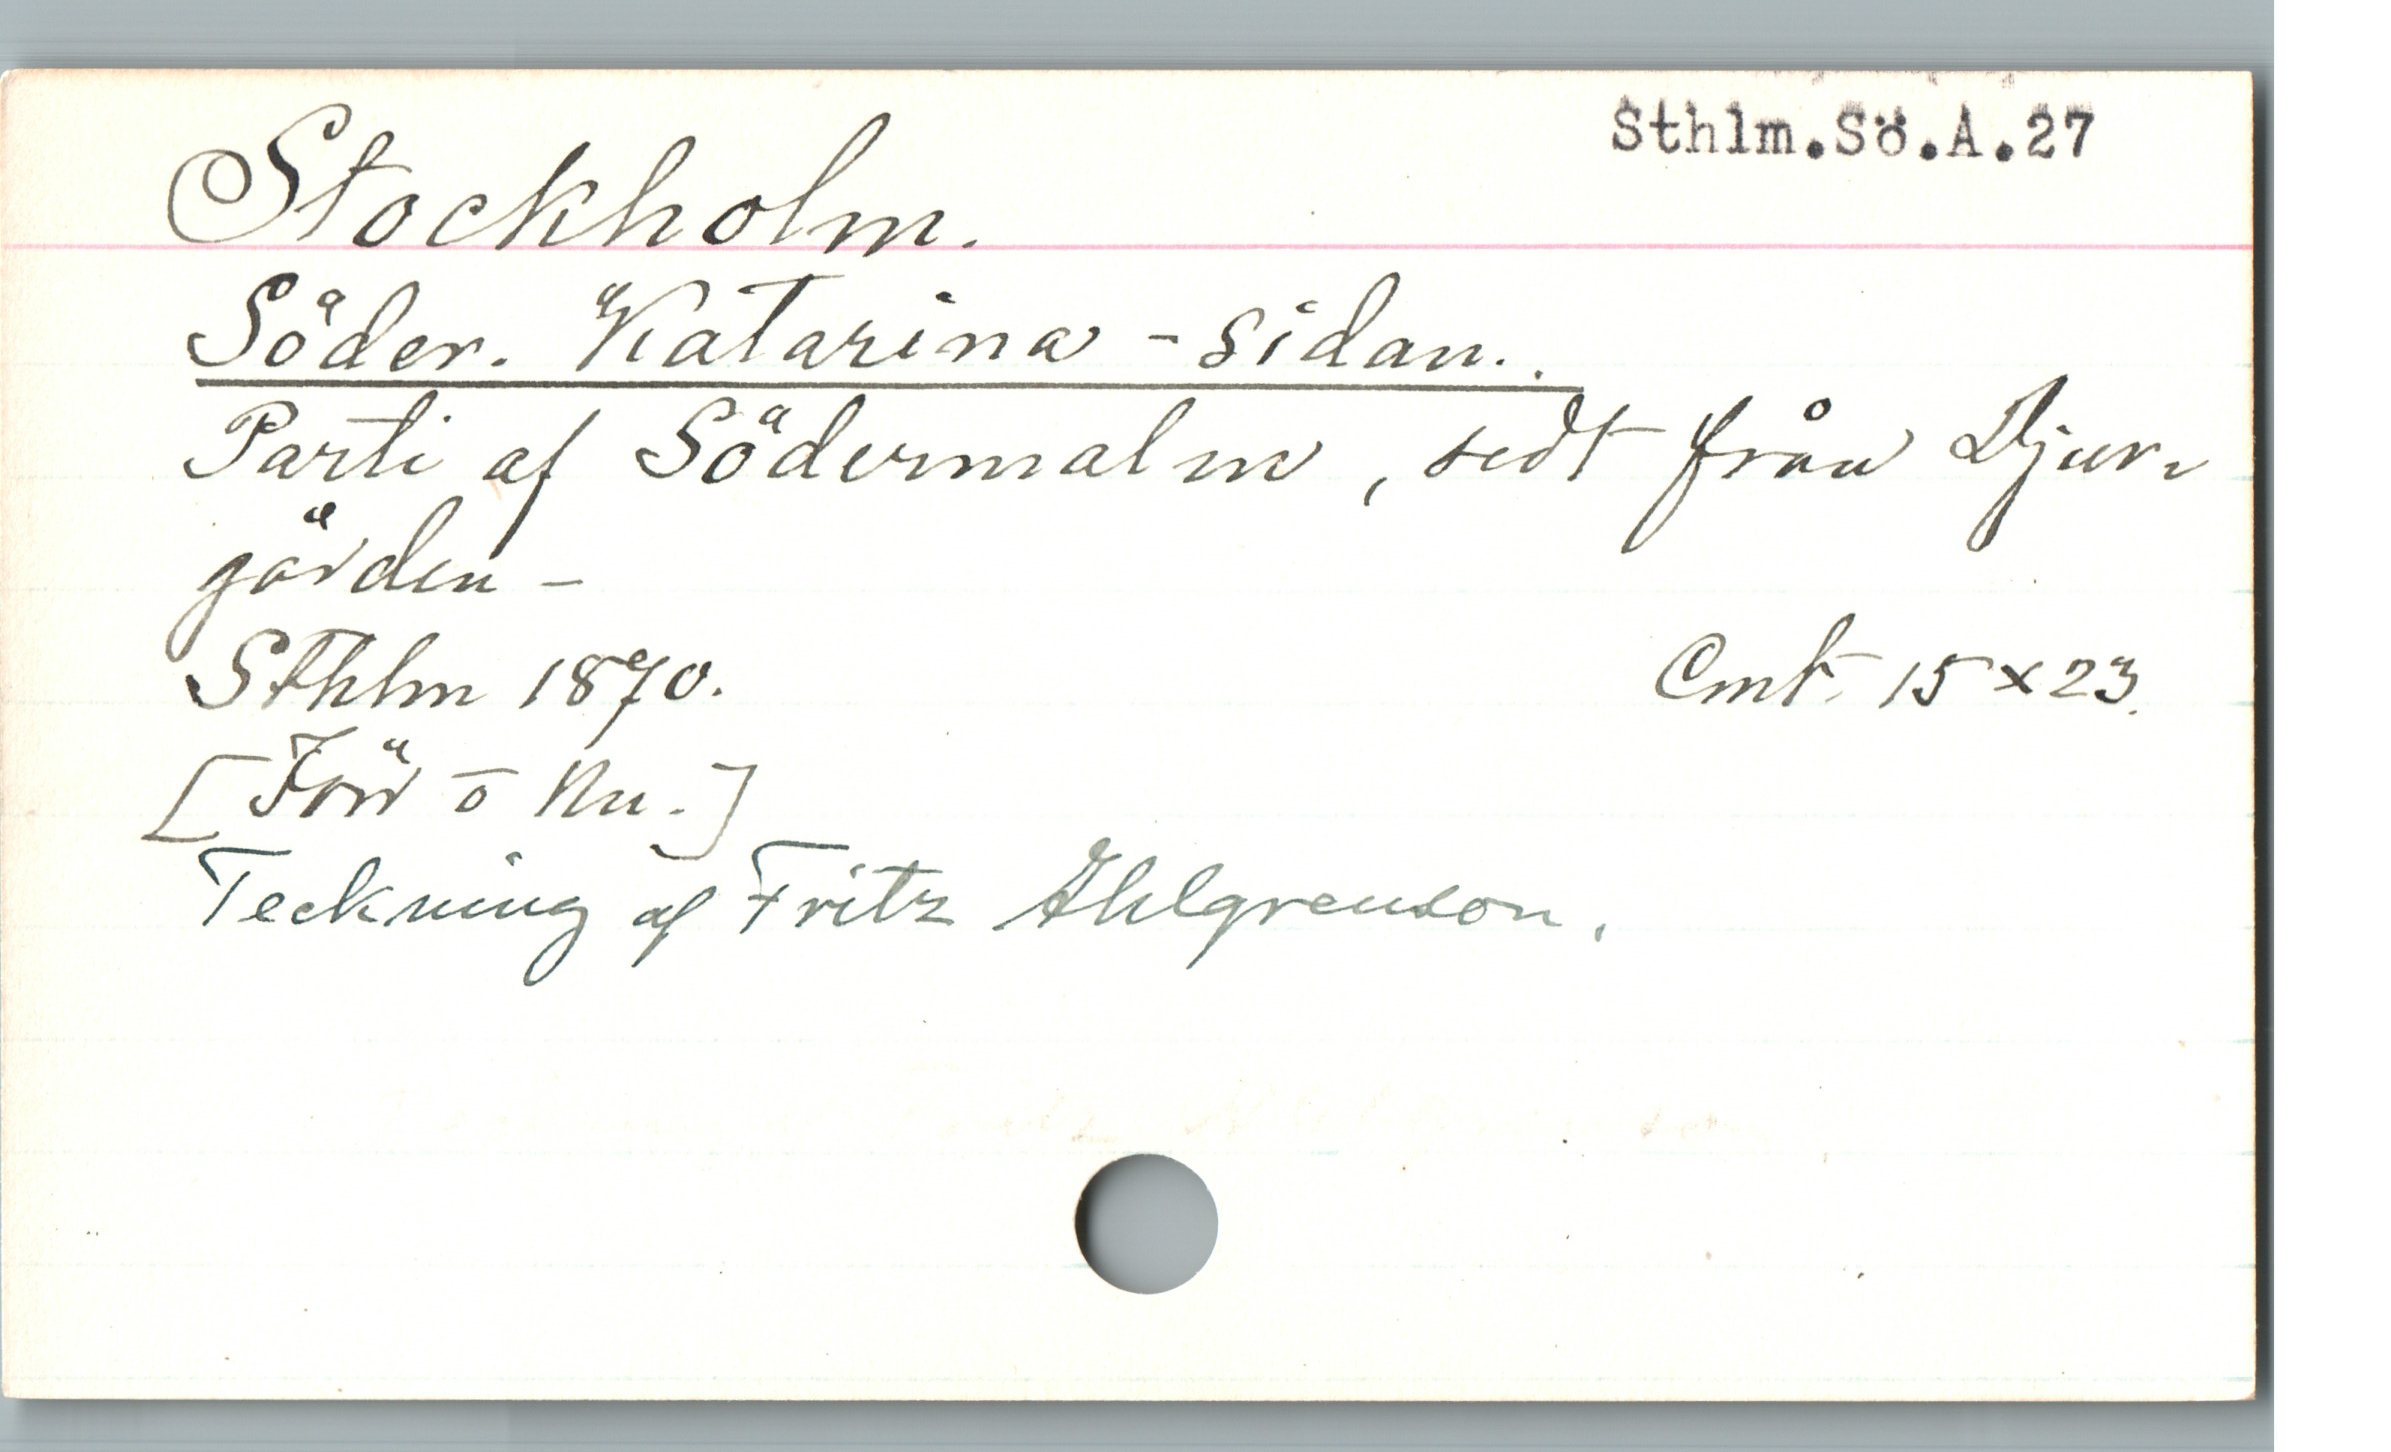 Sthlm.Sö.A.27
Stockholm.
Söder. Katarina-sidan.
Parti af Södermalm, sedt från Djur-
gården -
Sthlm 1870.
Cmt. 15 x 23.
[Förr o Nu.]
Teckning af Fritz Ahlgrenson.